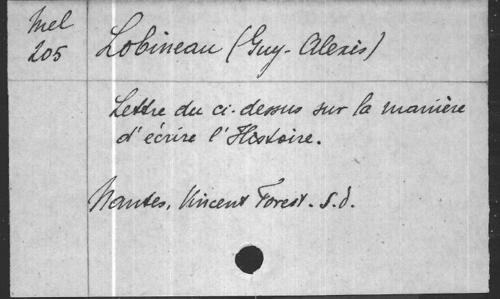 Mel
205
Lobineau (Guy-Alexis)
Lettre du ci-dessus sur la manière
d'écrire l'Histoire.
Nantes, Vincent Forest. s.d.